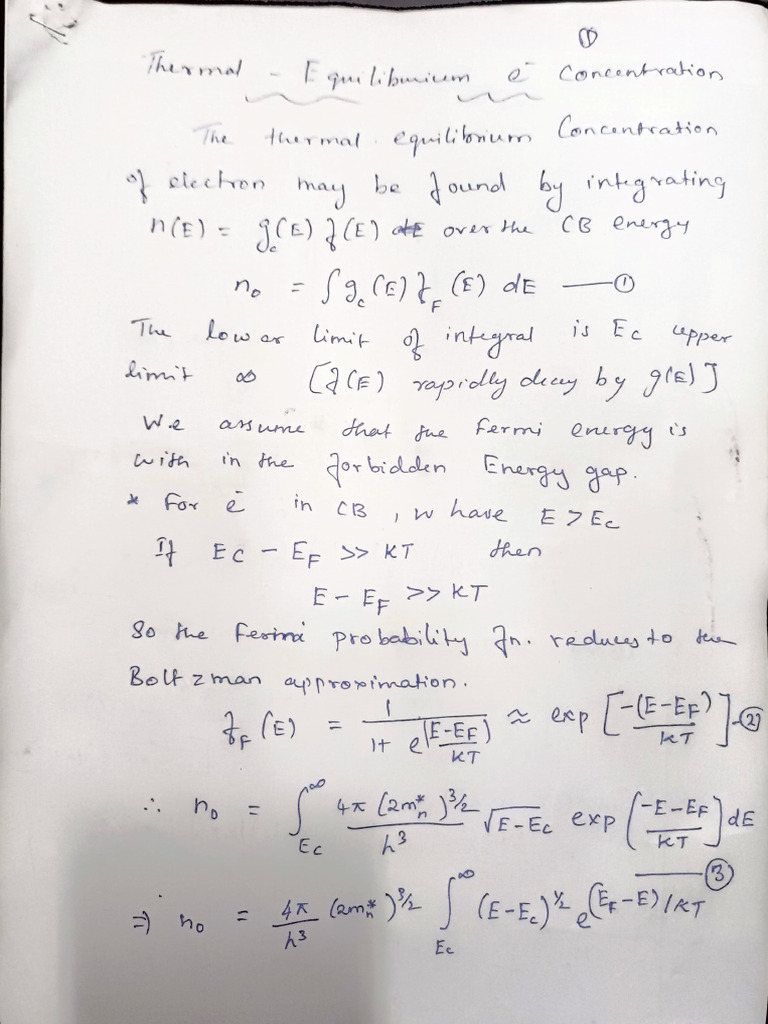 ①
Thermal - Equilibrium e⁻ Concentration
The thermal equilibrium Concentration
of electron may be found by integrating
n(E) = g_c(E) f(E) over the CB energy
n₀ = ∫ g_c(E) f_F(E) dE —①
The lower limit of integral is Ec upper
limit ∞ [f(E) rapidly decay by g(E)]
We assume that the Fermi energy is
with in the forbidden Energy gap.
* For e⁻ in CB, w have E > Ec
If EC - EF >> KT then
E - EF >> KT
So the Fermi probability fn. reduces to the
Boltzman approximation.
f_F(E) = 1/(1+ e^((E-EF)/KT)) ≈ exp [-(E-EF)/KT] —②
∴ n₀ = ∫_Ec^∞ 4π (2m*_n)^3/2 / h³ √(E-Ec) exp (-E-EF/KT] dE
—③
⇒ n₀ = 4π/h³ (2m*_n)^3/2 ∫_Ec^∞ (E-Ec)^½ e^(EF-E)/KT